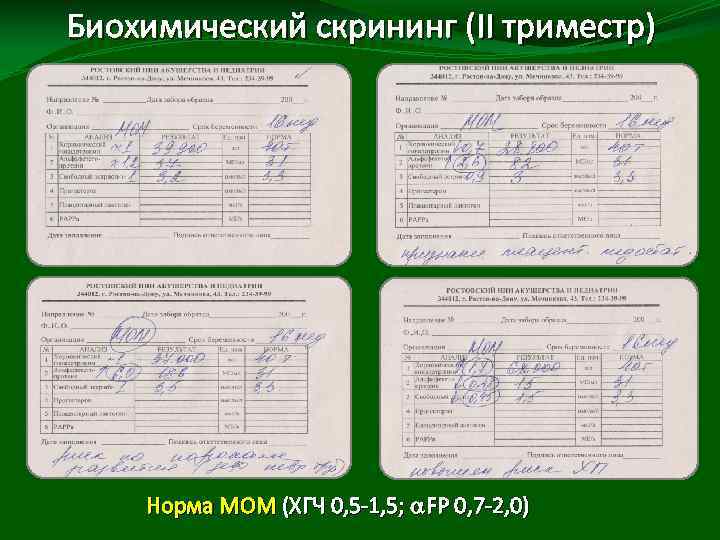 Биохимический скрининг (II триместр)
РОСТОВСКИЙ НИИ АКУШЕРСТВА И ПЕДИАТРИИ
344012, г. Ростов-на-Дону, ул. Мечникова, 43. Тел.: 234-39-90
Направление № Дата забора образца 200 г.
Ф.И.О.
Организация МОМ Срок беременности 16 нед
№ АНАЛИЗ РЕЗУЛЬТАТ Ед. изм НОРМА
1 Хорионический гонадотропин ~1 39 200 40 т
2 Альфафетопротеин ~1,2 37 МЕ/мл 31
3 Свободный эстриол ~1 3,2 3,3
4 Прогестерон
5 Плацентарный лактоген
6 PAPPa МЕ/л
Дата заполнения Подпись ответственного лица
РОСТОВСКИЙ НИИ АКУШЕРСТВА И ПЕДИАТРИИ
344012, г. Ростов-на-Дону, ул. Мечникова, 43. Тел.: 234-39-90
Направление № Дата забора образца 200 г.
Ф.И.О.
Организация МОМ Срок беременности 16 нед
№ АНАЛИЗ РЕЗУЛЬТАТ Ед. изм НОРМА
1 Хорионический гонадотропин 0,7 40 т
2 Альфафетопротеин 2,5 82 МЕ/мл 31
3 Свободный эстриол 0,9 3 3,3
4 Прогестерон
5 Плацентарный лактоген
6 PAPPa МЕ/л
Дата заполнения Подпись ответственного лица
признаки плацент. недостат.
РОСТОВСКИЙ НИИ АКУШЕРСТВА И ПЕДИАТРИИ
344012, г. Ростов-на-Дону, ул. Мечникова, 43. Тел.: 234-39-90
Направление № Дата забора образца 200 г.
Ф.И.О.
Организация МОМ Срок беременности 16 нед
№ АНАЛИЗ РЕЗУЛЬТАТ Ед. изм НОРМА
1 Хорионический гонадотропин ~1 37 000 40 т
2 Альфафетопротеин МЕ/мл 31
3 Свободный эстриол 3,5 3,3
4 Прогестерон
5 Плацентарный лактоген
6 PAPPa МЕ/л
Дата заполнения Подпись ответственного лица
риск по порокам
развития
РОСТОВСКИЙ НИИ АКУШЕРСТВА И ПЕДИАТРИИ
344012, г. Ростов-на-Дону, ул. Мечникова, 43. Тел.: 234-39-90
Направление № Дата забора образца 200 г.
Ф.И.О.
Организация МОМ Срок беременности 16 нед
№ АНАЛИЗ РЕЗУЛЬТАТ Ед. изм НОРМА
1 Хорионический гонадотропин 1,7 40 т
2 Альфафетопротеин 15 МЕ/мл 31
3 Свободный эстриол 1,5 3,3
4 Прогестерон
5 Плацентарный лактоген
6 PAPPa МЕ/л
Дата заполнения Подпись ответственного лица
повышен риск ХП
Норма МОМ (ХГЧ 0,5-1,5; αFP 0,7-2,0)